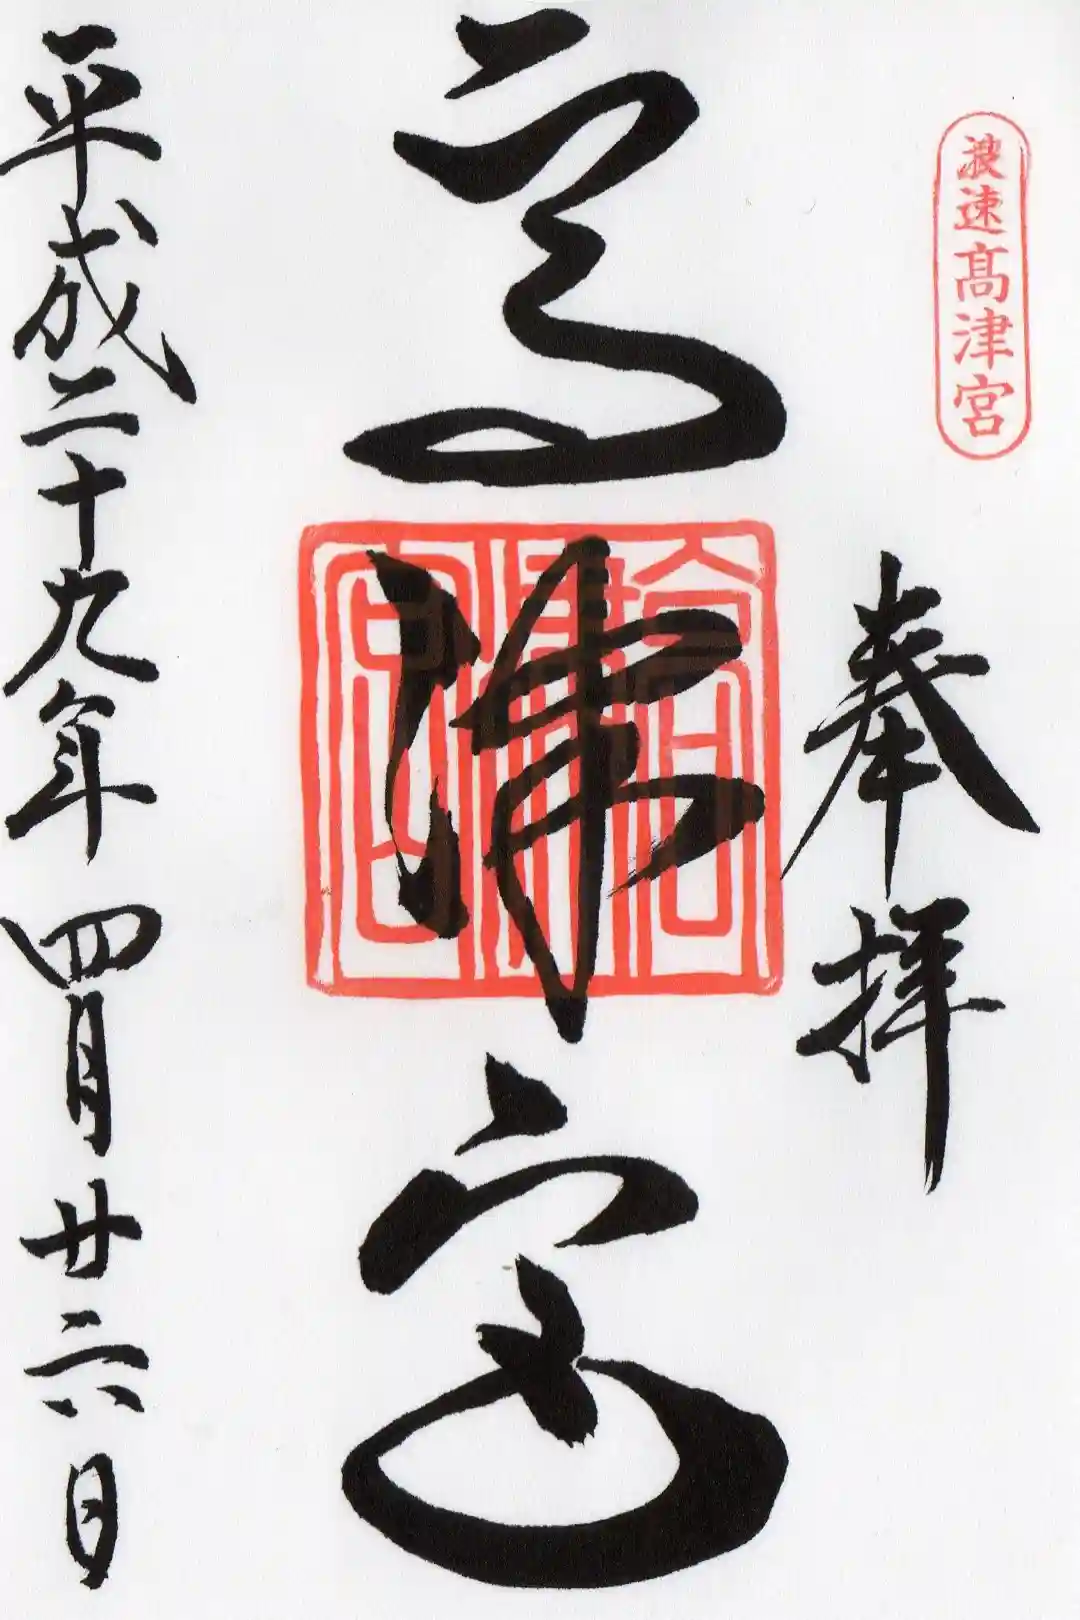 浪速髙津宮
奉拝
高津宮
高津宮
平成二十九年四月廿六日